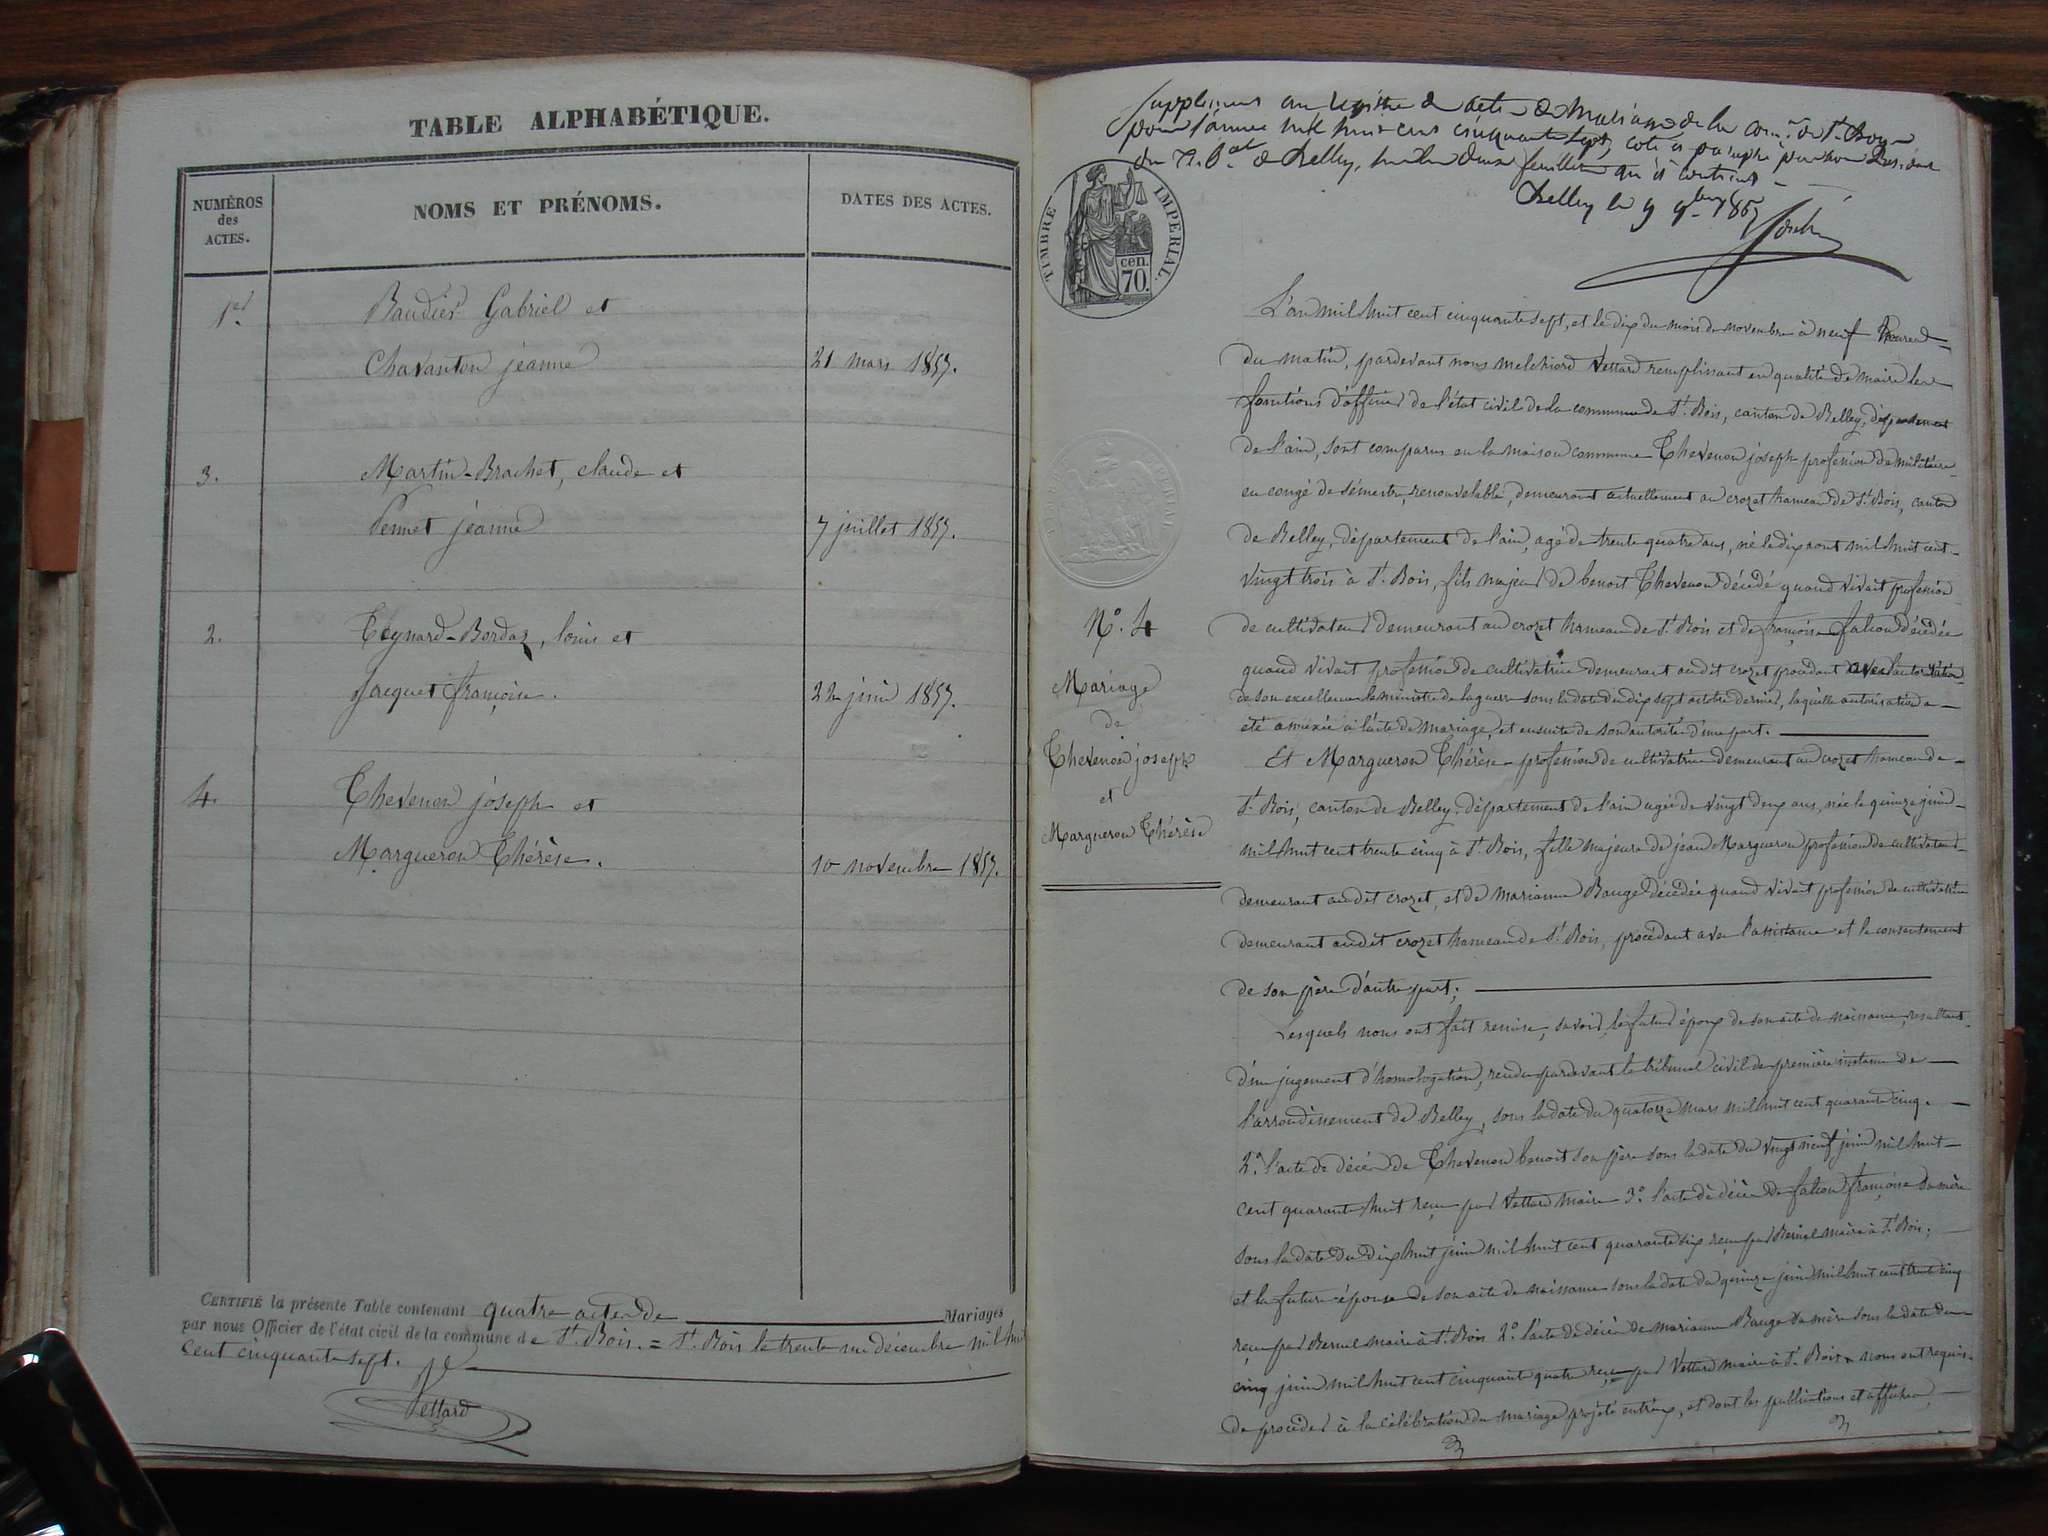 TABLE ALPHABÉTIQUE.
NUMÉROS
des
ACTES.
NOMS ET PRÉNOMS.
DATES DES ACTES.
1er
Baudier Gabriel et
Chavanton jeanne
21 mars 1857.
3.
Martin-Brachet, claude et
Pennet jeanne
7 juillet 1857.
2.
Teynard-Bordaz, louis et
Jacquet françoise.
22 juin 1857.
4.
Thevenon joseph et
Margueron Thérèse.
10 novembre 1857.
CERTIFIÉ la présente Table contenant quatre actes de Mariages
par nous Officier de l'état civil de la commune de St. Bois. = St. Bois le trente un décembre mil huit
cent cinquante sept.
Vettard
Supplément au registre de acte de Mariage de la com.ne de St. Boys
pour l'année mil huit cent cinquante sept, coté et paraphé par nous Président
du de Belley, feuillets qu'il contient
Belley le 9 9bre 1857
TIMBRE IMPERIAL.
cen.
70.
L'an mil huit cent cinquante sept, et le dix du mois de novembre à neuf heures
du matin, pardevant nous melchiord Vettard remplissant en qualité de maire les
fonctions d'officier de l'état civil de la commune de St. Bois, canton de Belley, département
de l'ain, sont comparus en la maison commune Thevenon joseph profession de militaire
en congé de sémestre, renouvelable, demeurant actuellement au crozet hameau de St. Bois, canton
de Belley, département de l'ain, agé de trente quatre ans, né le dix aout mil huit cent
vingt trois à St. Bois, fils majeur de benoit Thevenon décédé quand vivait profession
de cultivateur demeurant au crozet hameau de St. Bois et de françoise falion décédée
quand vivait profession de cultivatrice demeurant audit crozet procédant avec l'autorisation
de son excellence le ministre de la guerre sous la date du dix sept octobre dernier, laquelle autorisation a
été annexée à l'acte de mariage, et ensuite de son autorité d'une part.
N°. 4
Mariage
de
Thevenon joseph
et
Margueron Thérèse
Et Margueron Thérèse profession de cultivatrice demeurant au crozet hameau de
St. Bois, canton de Belley, département de l'ain agée de vingt deux ans, née le quinze juin
mil huit cent trente cinq à St. Bois, fille majeure de jean Margueron profession de cultivateur
demeurant audit crozet, et de marianne Bauge décédée quand vivait profession de cultivatrice
demeurant audit crozet hameau de St. Bois, procédant avec l'assistance et le consentement
de son père d'autre part;
Lesquels nous ont fait remise, savoir, le futur époux de son acte de naissance, resultant
d'un jugement d'homologation, rendu pardevant le tribunal civil de première instance de
l'arrondissement de Belley, sous la date du quatorze mars mil huit cent quarante cinq.
2°. l'acte de décès de Thevenon benoit son père sous la date du vingt neuf juin mil huit
cent quarante huit reçu par Vettard maire 3°. l'acte de décès de falion françoise sa mère
sous la date du dix huit juin mil huit cent quarante six reçu par Bernel maire à St. Bois;
et la future épouse de son acte de naissance sous la date du quinze juin mil huit cent trente cinq
reçu par Bernel maire à St. Bois 2°. l'acte de décès de marianne Bauge sa mère sous la date du
cinq juin mil huit cent cinquante quatre reçu par Vettard maire à St. Bois nous ont requis
de procéder à la célébration du mariage projeté entr'eux, et dont les publications et affiches